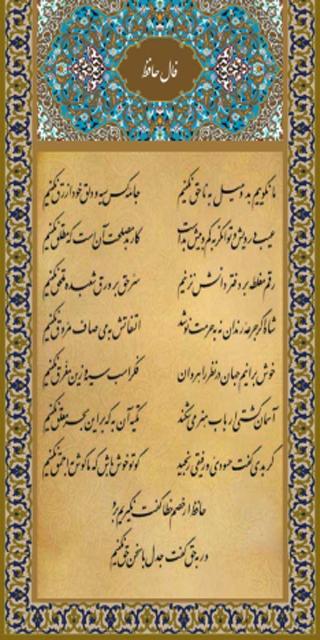 فال حافظ
ما نگوییم بد و میل به ناحق نکنیم جامه کس سیه و دلق خود ازرق نکنیم
عیب درویش و توانگر به کم و بیش بد است کار بد مصلحت آن است که مطلق نکنیم
رقم مغلطه بر دفتر دانش نزنیم سر حق بر ورق شعبده ملحق نکنیم
شاه اگر جرعه رندان نه به حرمت نوشد التفاتش به می صاف مروق نکنیم
خوش برانیم جهان در نظر راهروان فکر اسب سیه و زین مغرق نکنیم
آسمان کشتی ارباب هنر می‌شکند تکیه آن به که بر این بحر معلق نکنیم
گر بدی گفت حسودی و رفیقی رنجید گو تو خوش باش که ما گوش به احمق نکنیم
حافظ ار خصم خطا گفت نگیریم بر او
ور به حق گفت جدل با سخن حق نکنیم